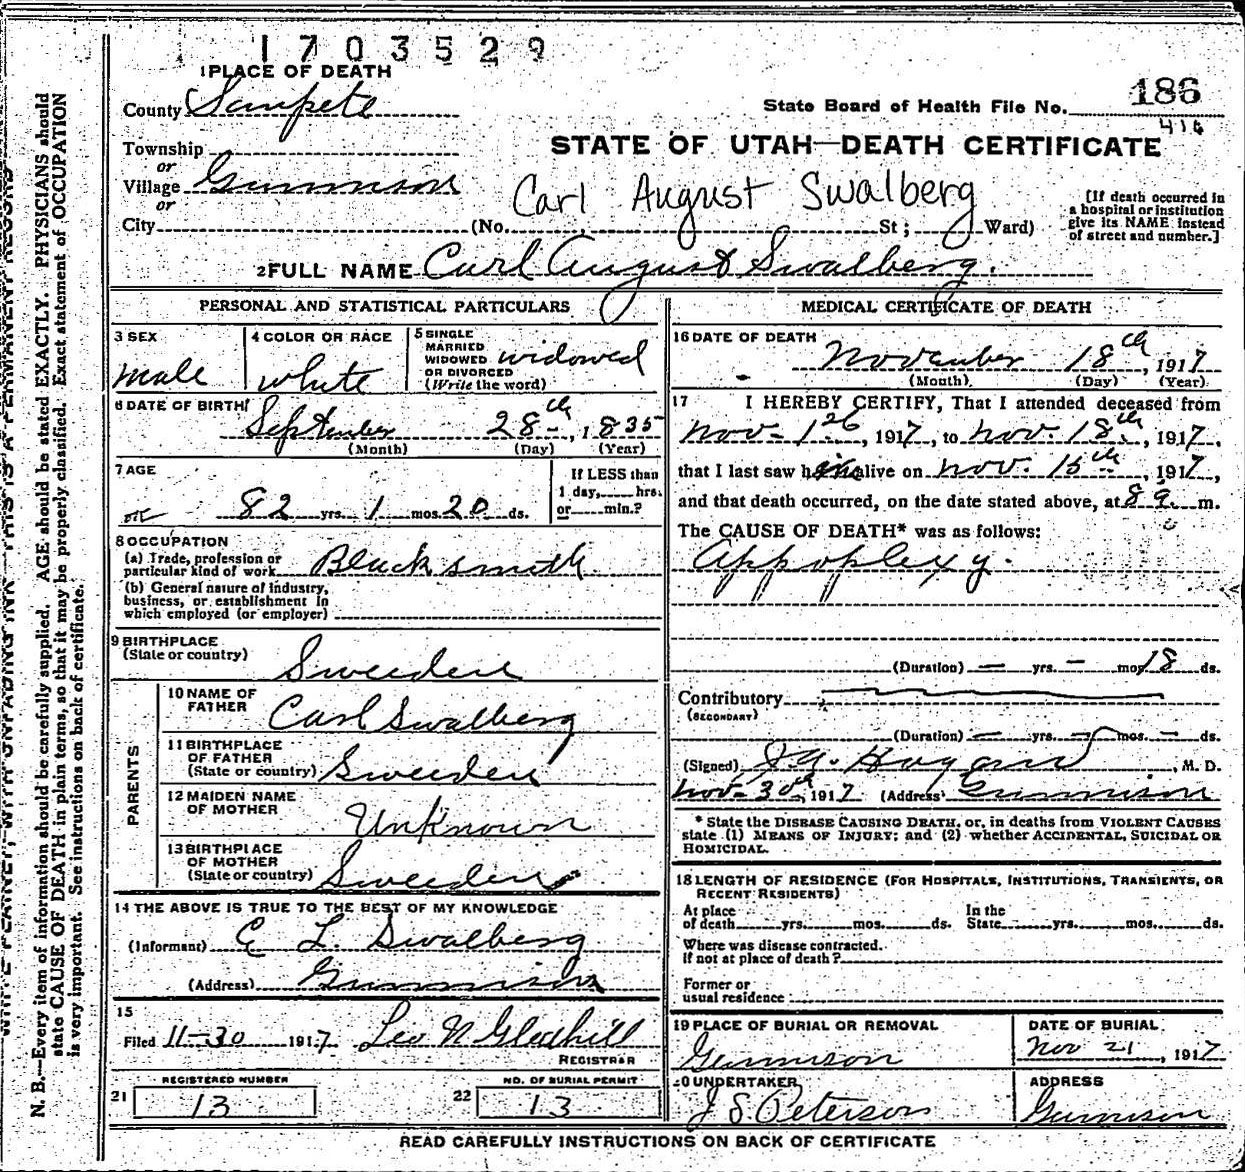 1703529
1 PLACE OF DEATH
County Sanpete
State Board of Health File No. 186
416
Township
or
Village Gunnison
or
City
STATE OF UTAH—DEATH CERTIFICATE
Carl August Swalberg
(No. St; Ward)
[If death occurred in
a hospital or institution
give its NAME instead
of street and number.]
2 FULL NAME Carl August Swalberg.
PERSONAL AND STATISTICAL PARTICULARS
3 SEX
male
4 COLOR OR RACE
white
5 SINGLE
MARRIED
WIDOWED
OR DIVORCED
(Write the word)
widowed
6 DATE OF BIRTH
September 28th, 1835
(Month) (Day) (Year)
7 AGE
82 yrs. 1 mos. 20 ds.
If LESS than
1 day, hrs.
or min.?
8 OCCUPATION
(a) Trade, profession or
particular kind of work Blacksmith
(b) General nature of industry,
business, or establishment in
which employed (or employer)
9 BIRTHPLACE
(State or country)
Sweeden
PARENTS
10 NAME OF
FATHER
Carl Swalberg
11 BIRTHPLACE
OF FATHER
(State or country) Sweeden
12 MAIDEN NAME
OF MOTHER
Unknown
13 BIRTHPLACE
OF MOTHER
(State or country) Sweeden
14 THE ABOVE IS TRUE TO THE BEST OF MY KNOWLEDGE
(Informant) E L. Swalberg
(Address) Gunnison
15
Filed 11-30 1917 Leo N Gledhill
REGISTRAR
REGISTERED NUMBER
21 13
NO. OF BURIAL PERMIT
22 13
MEDICAL CERTIFICATE OF DEATH
16 DATE OF DEATH
November 18th, 1917
(Month) (Day) (Year)
17 I HEREBY CERTIFY, That I attended deceased from
Nov-1, 1917, to Nov. 18th, 1917,
that I last saw him alive on Nov. 15th, 1917,
and that death occurred, on the date stated above, at 8 a. m.
The CAUSE OF DEATH* was as follows:
Appoplexy.
(Duration) — yrs. — mos. 18 ds.
Contributory
(SECONDARY)
(Duration) — yrs. — mos. — ds.
(Signed) J.A. Hagan, M. D.
Nov-30th, 1917 (Address) Gunnison
* State the DISEASE CAUSING DEATH, or, in deaths from VIOLENT CAUSES
state (1) MEANS OF INJURY; and (2) whether ACCIDENTAL, SUICIDAL OR
HOMICIDAL.
18 LENGTH OF RESIDENCE (FOR HOSPITALS, INSTITUTIONS, TRANSIENTS, OR
RECENT RESIDENTS)
At place
of death yrs. mos. ds.
In the
State yrs. mos. ds.
Where was disease contracted.
if not at place of death?
Former or
usual residence
19 PLACE OF BURIAL OR REMOVAL
Gunnison
DATE OF BURIAL
Nov 21, 1917
20 UNDERTAKER
J S. Peterson
ADDRESS
Gunnison
READ CAREFULLY INSTRUCTIONS ON BACK OF CERTIFICATE
WRITE PLAINLY, WITH UNFADING INK—THIS IS A PERMANENT RECORD
N. B.—Every item of information should be carefully supplied. AGE should be stated EXACTLY. PHYSICIANS should
state CAUSE OF DEATH in plain terms, so that it may be properly classified. Exact statement of OCCUPATION
is very important. See instructions on back of certificate.